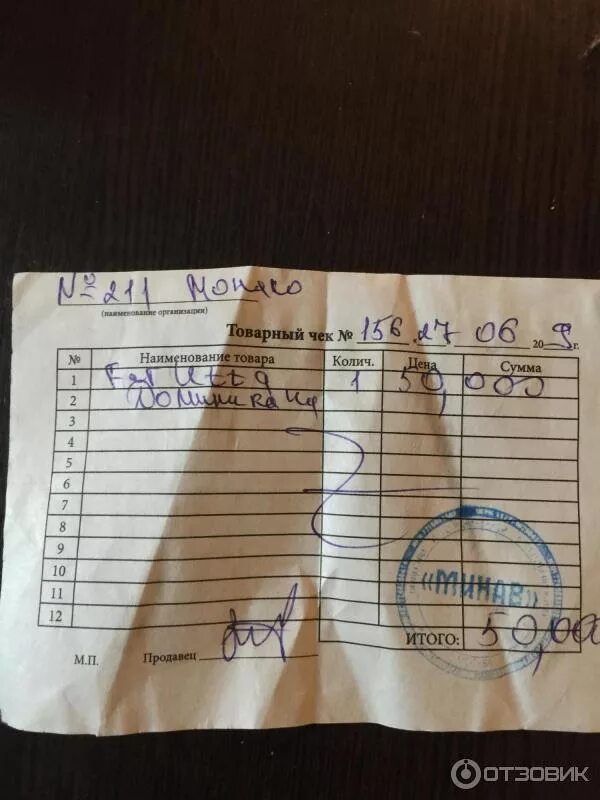 № 211 Монако
(наименование организации)
Товарный чек № 156 27 06 20 9 г.
№ Наименование товара Колич. Цена Сумма
1 1 50,000
2 Доминикана
3
4
5
6
7
8
9
10
11
12
«МИНАВ»
ИТОГО: 50,00
М.П. Продавец
ОТЗОВИК